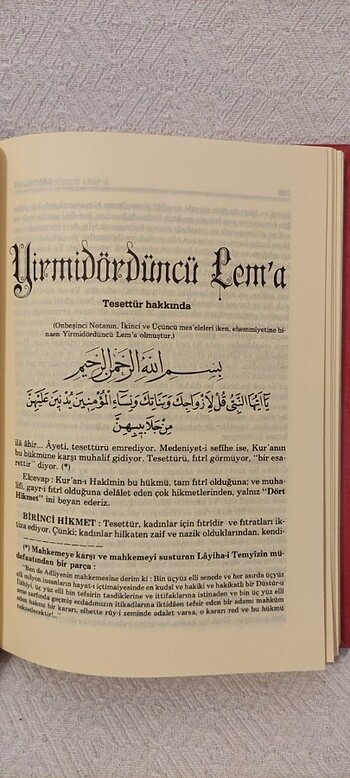 Yirmidördüncü Lem'a
Tesettür hakkında
(Onbeşinci Notanın, İkinci ve Üçüncü mes'eleleri iken, ehemmiyetine bi-
naen Yirmidördüncü Lem'a olmuştur.)
بِسْمِ اللّٰهِ الرَّحْمٰنِ الرَّحِيمِ
يَٓا اَيُّهَا النَّبِيُّ قُلْ لِاَزْوَاجِكَ وَبَنَاتِكَ وَنِسَٓاءِ الْمُؤْمِنِينَ يُدْنِينَ عَلَيْهِنَّ
مِنْ جَلَابِيبِهِنَّ
ilâ âhir... Âyeti, tesettürü emrediyor. Medeniyet-i sefihe ise, Kur'anın
bu hükmüne karşı muhalif gidiyor. Tesettürü, fıtrî görmüyor, "bir esa-
rettir" diyor. (*)
Elcevap : Kur'an-ı Hakîmin bu hükmü, tam fıtrî olduğuna; ve muha-
lifi, gayr-i fıtrî olduğuna delâlet eden çok hikmetlerinden, yalnız "Dört
Hikmet" ini beyan ederiz.
BİRİNCİ HİKMET : Tesettür, kadınlar için fıtrîdir ve fıtratları ik-
tiza ediyor. Çünki; kadınlar hilkaten zaif ve nazik olduklarından, kendi-
(*) Mahkemeye karşı ve mahkemeyi susturan Lâyiha-i Temyizin mü-
dafaatından bir parça :
"Ben de Adliyenin mahkemesine derim ki : Bin üçyüz elli senede ve her asırda üçyüz
elli milyon insanların hayat-ı içtimaiyesinde en kudsî ve hakikî ve hakikatlı bir Düstur-u
İlâhîyi, üç yüz elli bin tefsirin tasdiklerine ve ittifaklarına istinaden ve bin üç yüz elli
sene zarfında geçmiş ecdadımızın itikadlarına iktidâen tefsir eden bir adamı mahkûm
eden haksız bir kararı, elbette rûy-i zeminde adalet varsa, o kararı red ve bu hükmü
nakzedecektir!..."